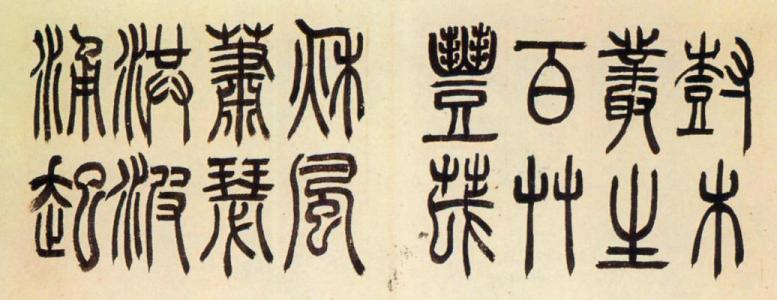 尌木
叢生
百艸
豐茂
秋風
蕭瑟
洪波
涌起